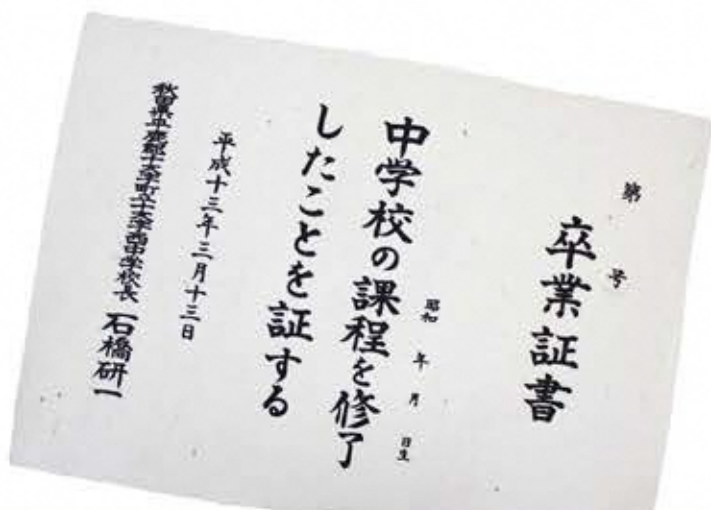 卒業証書
第 号
昭和 年 月 日生
中学校の課程を修了
したことを証する
平成十三年三月十三日
秋田県平鹿郡十文字町立十文字西中学校長 石橋研一